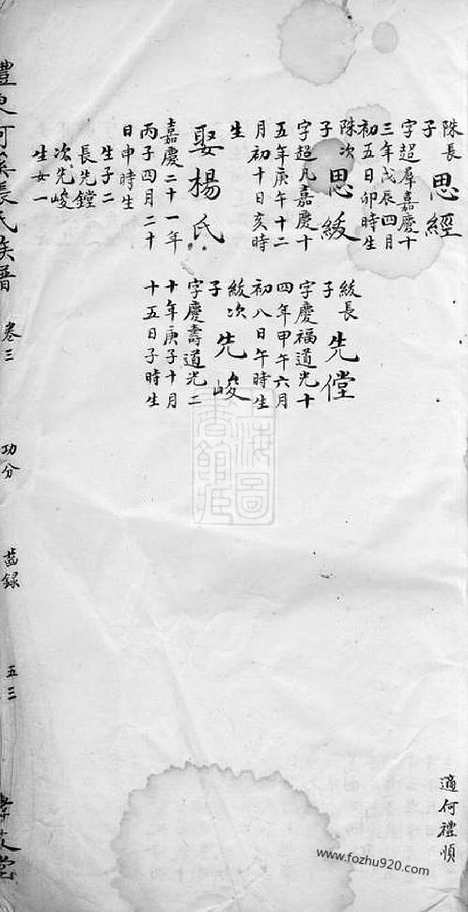 適何禮順
長
子
思經
字超羣嘉慶十
三年戊辰四月
初五日卯時生
次
子
思紱
字超凡嘉慶十
五年庚午十二
月初十日亥時
生
娶楊氏
嘉慶二十一年
丙子四月二十
日申時生
生子二
長先鏜
次先峻
生女一
紱長
子
先
字慶福道光十
四年甲午六月
初八日午時生
紱次
子
先峻
字慶壽道光二
十年庚子十月
十五日子時生
氏族譜 卷三 功分 齒錄 五三
海圖
書館藏
www.fozhu920.com